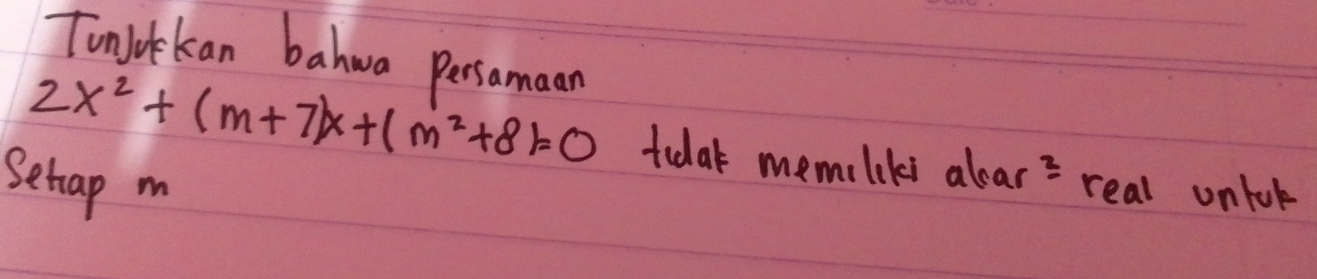 Tunjukkan bahwa persamaan
2x² + (m+7)x + (m²+8)=0 tidak memiliki akar² real untuk
Setiap m